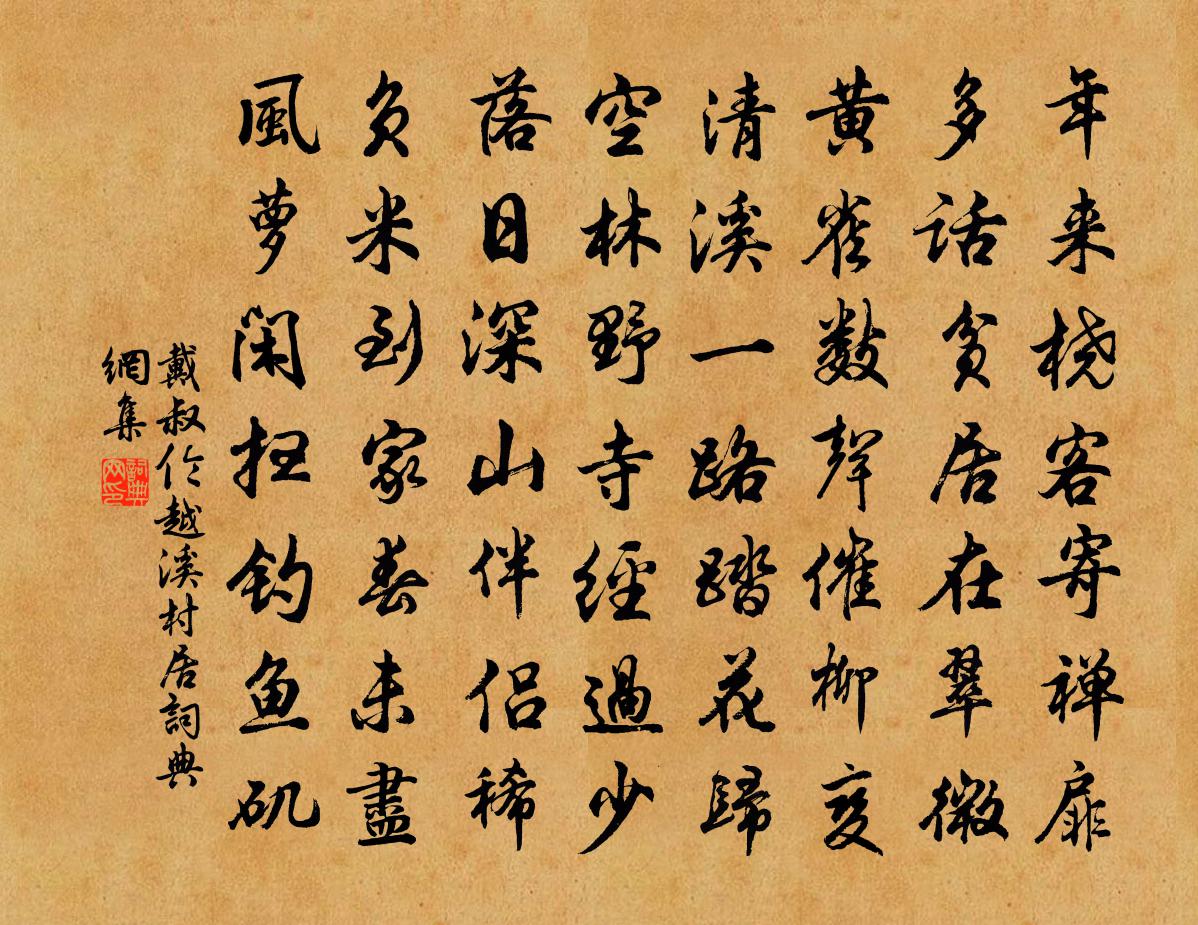 年来桡客寄禅扉
多话贫居在翠微
黄雀数聲催柳变
清溪一路踏花歸
空林野寺經過少
落日深山伴侣稀
负米到家春未盡
風萝闲扫钓鱼矶
戴叔伦越溪村居詞典
網集
詞典网印